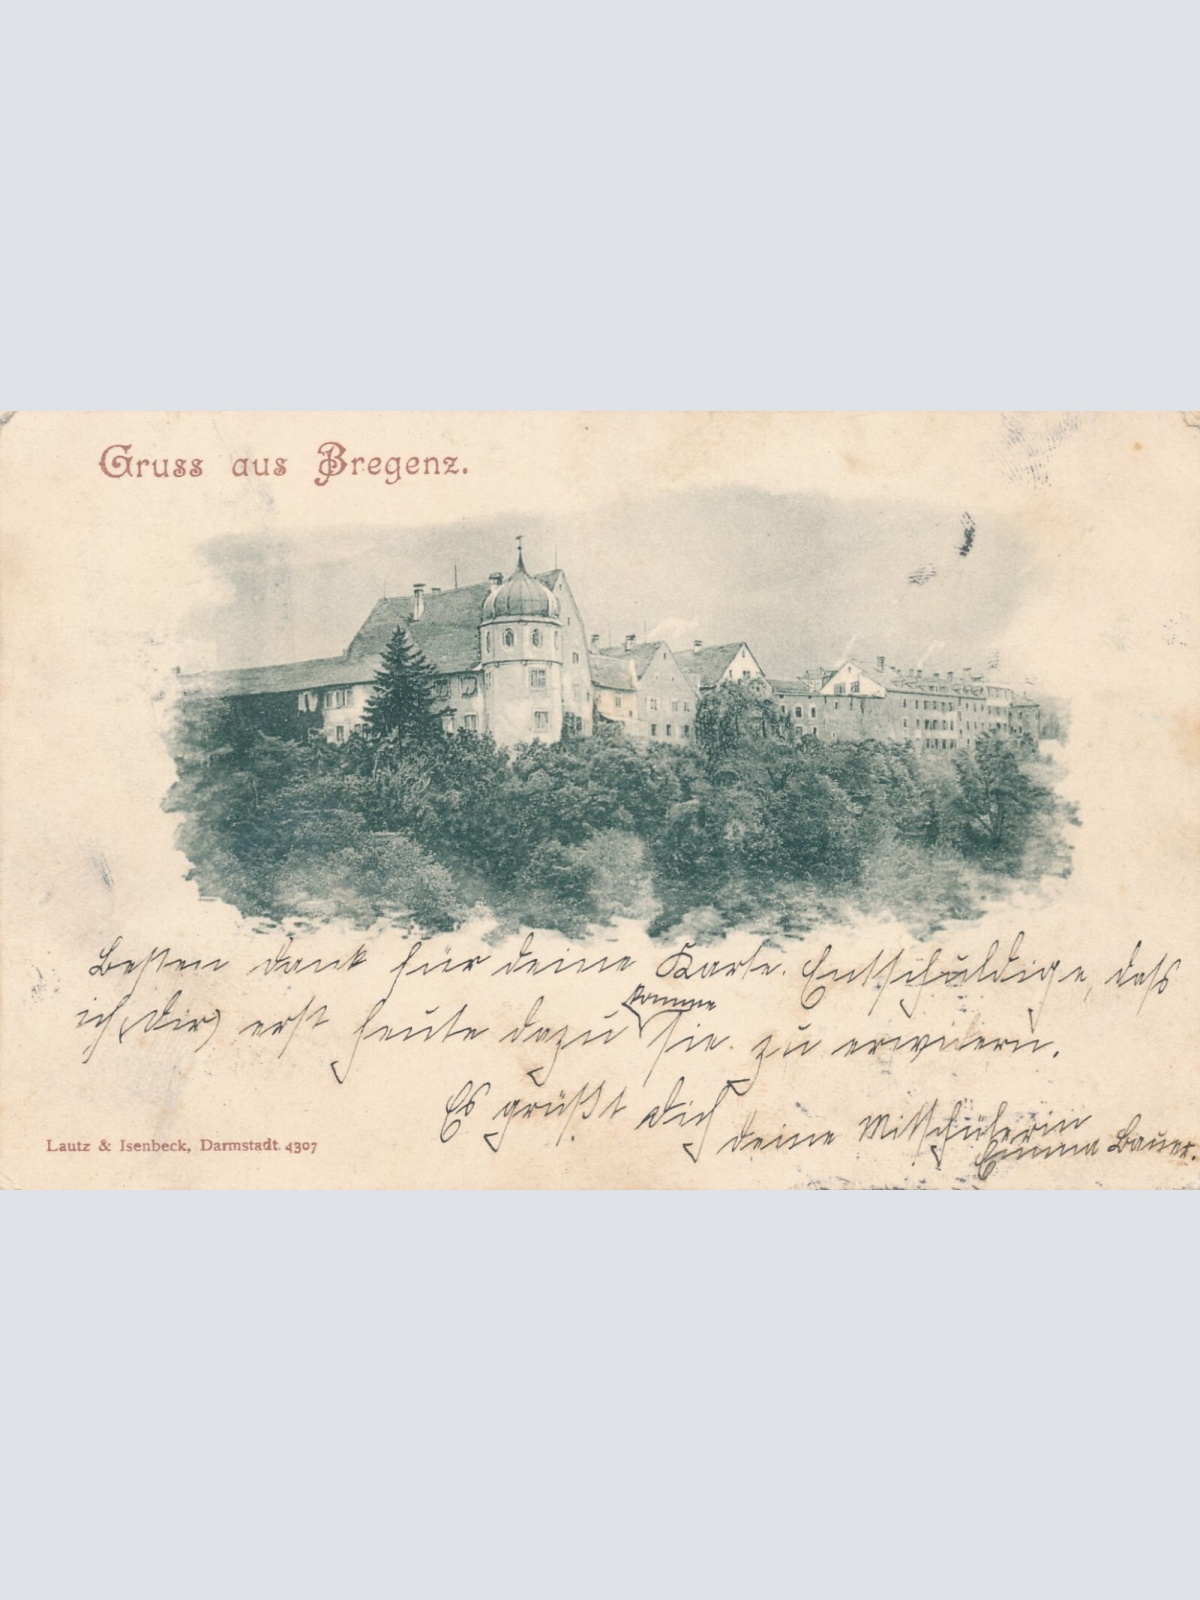 Gruss aus Bregenz.
Besten dank für deine Karte. Entschuldige, dass
komme
ich (dir) erst heute dazu sie zu erwidern.
Es grüßt dich
deine Mitschülerin
Emma Bauer.
Lautz & Isenbeck, Darmstadt. 4307